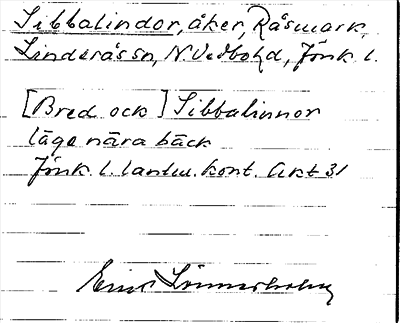 Sibbalindor, åker, Råsmark,
Linderås sn, N. Vedbo hd, Jönk. l.
[Bred ock] Sibbalinnor
läge nära bäck
Jönk. l. lantm. kont. Akt 31